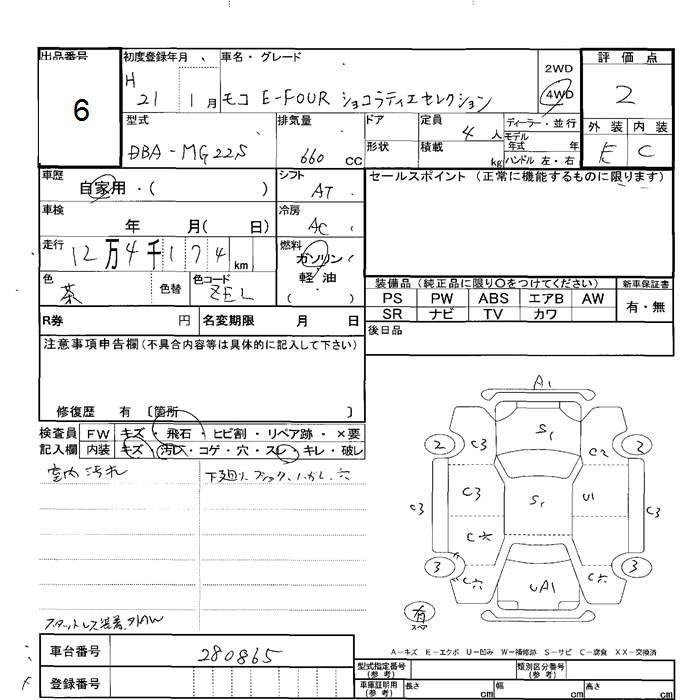 出品番号
6
初度登録年月
H
21 1月
車名・グレード
モコ E-FOUR ショコラティエセレクション
2WD
4WD
評価点
2
外装 内装
E C
型式
DBA-MG22S
排気量
660 CC
ドア
形状
定員 4人
積載 kg
ディーラー・並行
モデル
年式 年
ハンドル 左・右
車歴
自家用・( )
シフト
AT
セールスポイント (正常に機能するものに限ります)
車検
年 月( 日)
冷房
AC
走行
12万4千174km
燃料
ガソリン
軽油
( )
色
茶
色替
色コード
ZEL
装備品 (純正品に限り○をつけてください)
新車保証書
PS PW ABS エアB AW
SR ナビ TV カワ
有・無
R券 円 名変期限 月 日
後日品
注意事項申告欄 (不具合内容等は具体的に記入して下さい)
修復歴 有 〔箇所 〕
検査員 FW キズ・飛石・ヒビ割・リペア跡・×要
記入欄 内装 キズ・汚レ・コゲ・穴・スレ・キレ・破レ
室内汚れ
A1
C3 S1 C2
2 2
C3 C3 S1 U1 C3
C穴
3 3
C穴 UA1 C穴
有
スペア
A-キズ E-エクボ U-凹み W-補修跡 S-サビ C-腐食 XX-交換済
車台番号 280865
登録番号
型式指定番号
(参考)
類別区分番号
(参考)
車庫証明用
(参考)
長さ cm 幅 cm 高さ cm